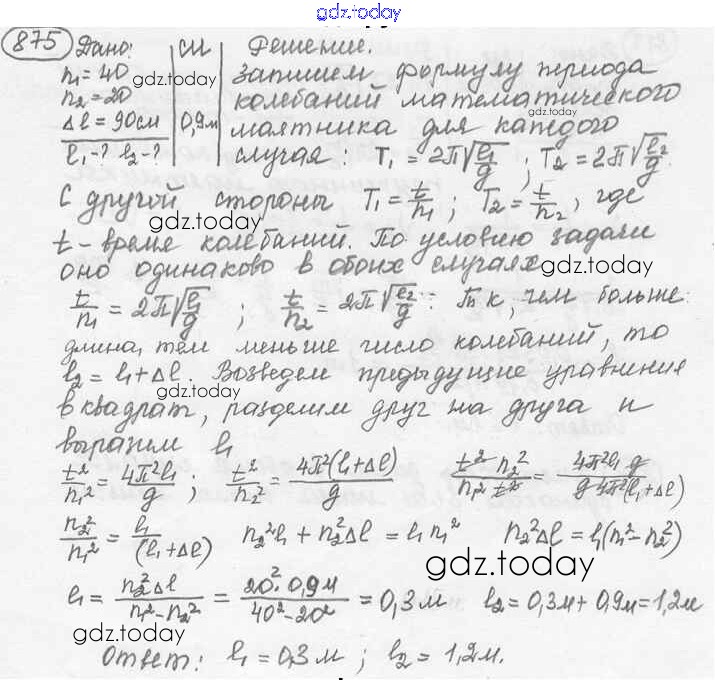 gdz.today
875 Дано: СИ Решение.
n₁ = 40 Запишем формулу периода
n₂ = 20 колебаний математического
Δl = 90 см 0,9 м маятника для каждого
l₁ - ? l₂ - ? случая: T₁ = 2π√(l₁/g); T₂ = 2π√(l₂/g).
gdz.today
gdz.today
С другой стороны T₁ = t/n₁; T₂ = t/n₂, где
gdz.today
t - время колебаний. По условию задачи
оно одинаково в обоих случаях
gdz.today
t/n₁ = 2π√(l/g); t/n₂ = 2π√(l₂/g). Т к, чем больше
длина, тем меньше число колебаний, то
l₂ = l₁ + Δl. Возведем предыдущие уравнения
gdz.today
в квадрат, разделим друг на друга и
выразим l₁
gdz.today
t²/n₁² = 4π²l₁/g; t²/n₂² = 4π²(l₁+Δl)/g t² n₂²/n₁² t² = 4π²l₁ g/g 4π²(l₁+Δl)
n₂²/n₁² = l₁/(l₁+Δl) n₂²l₁ + n₂²Δl = l₁n₁² n₂²Δl = l₁(n₁² - n₂²)
gdz.today
l₁ = n₂²Δl/n₁²-n₂² = 20²·0,9м/40²-20² = 0,3 м l₂ = 0,3м + 0,9м = 1,2м
gdz.today
Ответ: l₁ = 0,3 м; l₂ = 1,2 м.
gdz.today